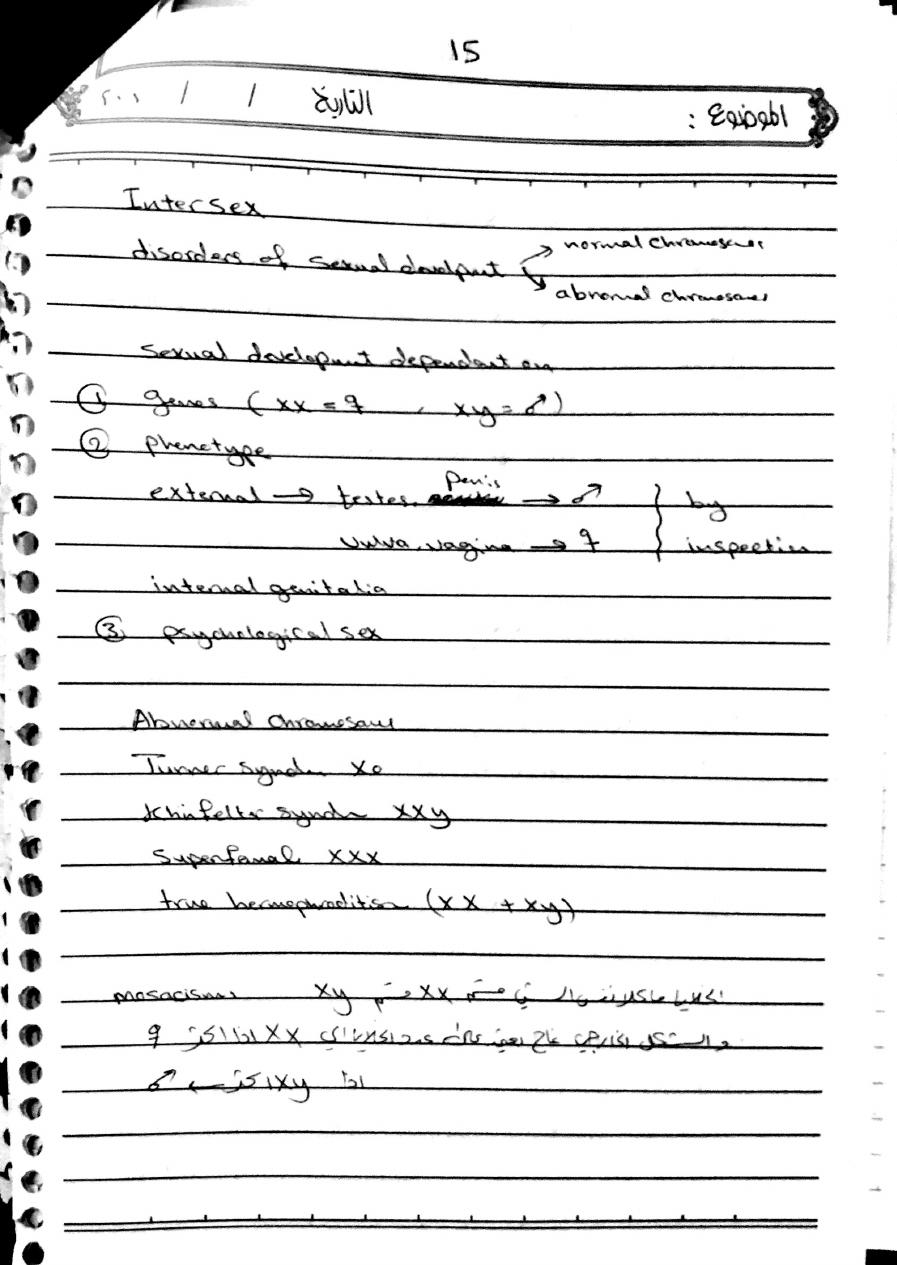 15
الموضوع : التاريخ / / ٢٠١
Intersex
disorders of sexual develpment → normal chromosomes
→ abnormal chromosomes
sexual development dependant on
① genes (xx = ♀ , xy = ♂)
② phenotype
external → testes, penis → ♂ } by
vulva, vagina → ♀ } inspection
internal genitalia
③ psychological sex
Abnormal chromosomes
Turner syndr xo
Klinfelter syndr xxy
Superfemal xxx
true hermephroditism (xx + xy)
mosacisms الخلايا ما كلا نفس الشي قسم xx قسم xy
والشكل الخارجي عدد الخلايا xx اذا اكثر ♀
اذا xy اكثر ← ♂